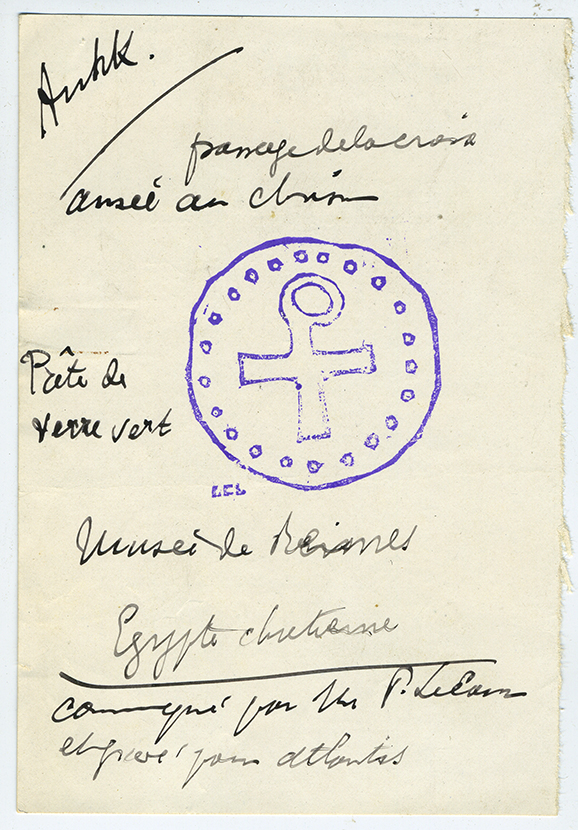 Ankh.
passage de la croix
ansée au chrisme
Pâte de
verre vert
LCL
Musée de Rennes
Egypte chretienne
communiqué par Mr P. Le Cour
et gravé pour atlantis